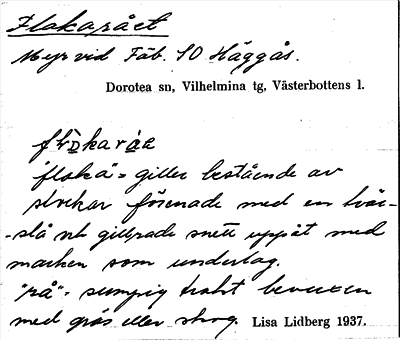 Flokarået
Myr vid Fäb. SO Häggås.
Dorotea sn, Vilhelmina tg, Västerbottens l.
"floka" = giller bestående av
stockar förenade med en tvär-
-slå och gillrade snett uppåt med
marken som underlag.
"rå" = sumpig trakt bevuxen
med gräs eller skog. Lisa Lidberg 1937.